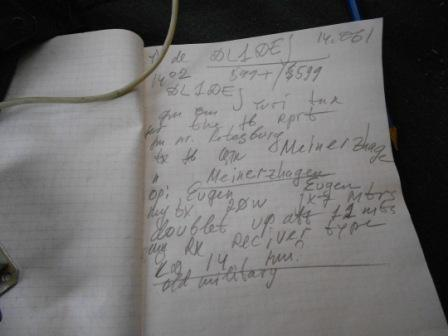 de DL1DEJ 14.061
1402 599+/$599
DL1DEJ
gm Yuri tnx
for the fb rprt
nr.
tx fb QTH Meinerzhage
Meinerzhagen
op: Eugen Eugen
my tx 20W mtrs
doublet up att 12 mts
my Rx Reciver type
14
old military